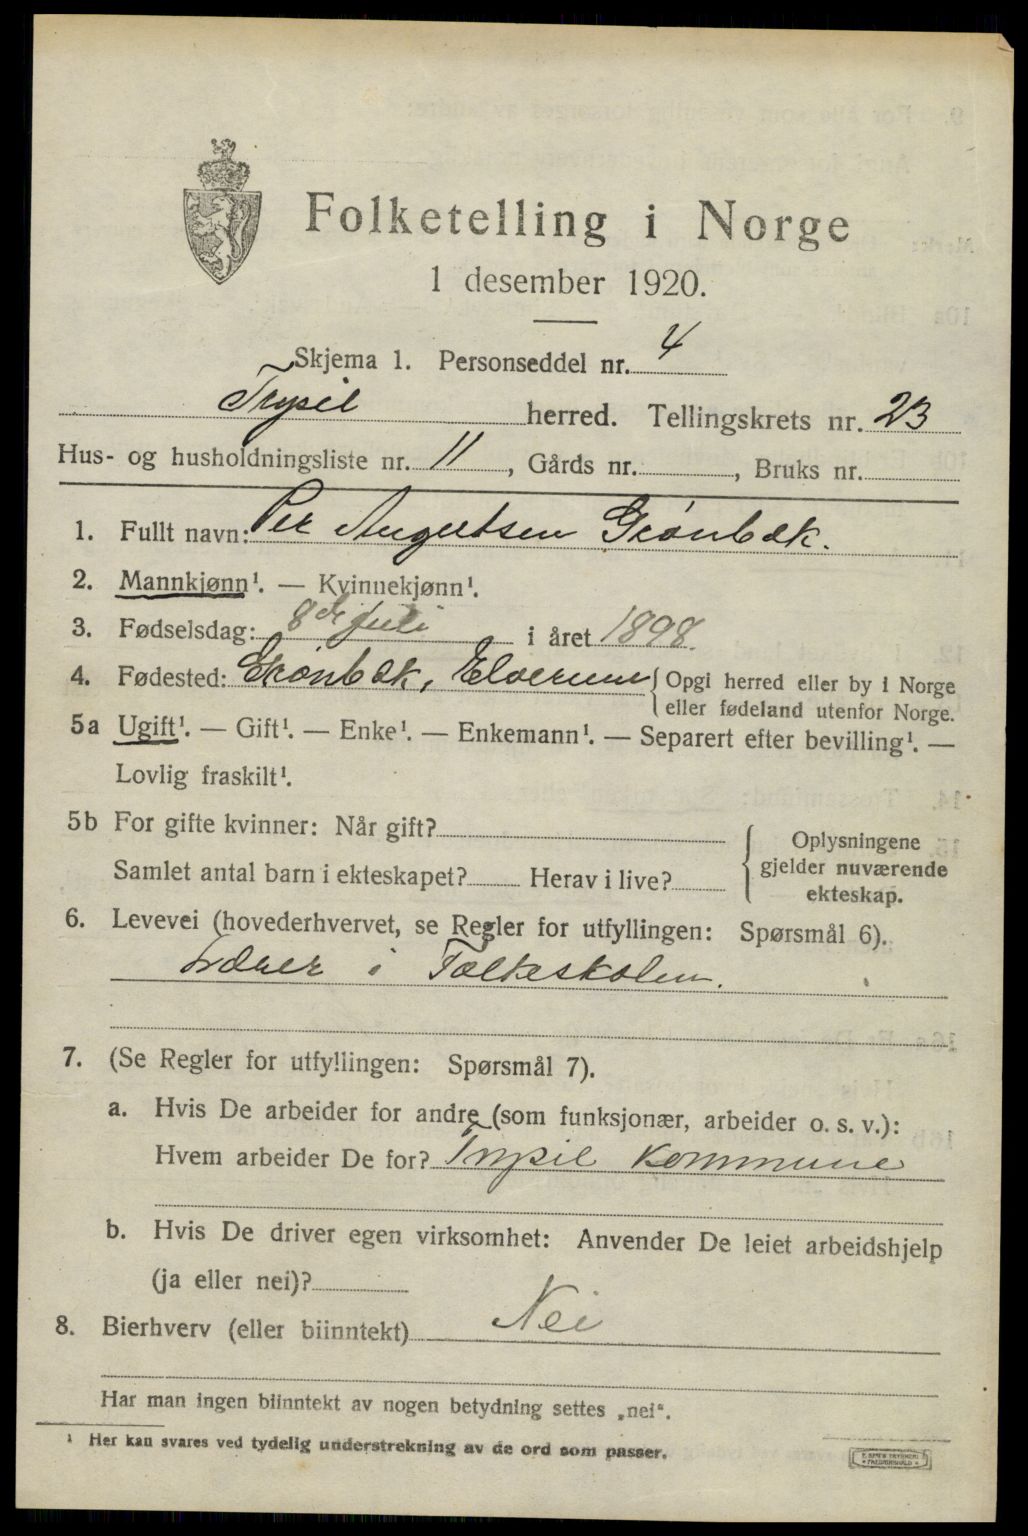 Folketelling i Norge
1 desember 1920.
Skjema 1. Personseddel nr. 4
Trysil herred. Tellingskrets nr. 23
Hus- og husholdningsliste nr. 11, Gårds nr. , Bruks nr.
1. Fullt navn: Per Angertsen Grønbæk.
2. Mannkjønn¹. — Kvinnekjønn¹.
3. Fødselsdag: 8de juli i året 1898.
4. Fødested: Grønbæk, Elverum { Opgi herred eller by i Norge
eller fødeland utenfor Norge.
5a Ugift¹. — Gift¹. — Enke¹. — Enkemann¹. — Separert efter bevilling¹. —
Lovlig fraskilt¹.
5b For gifte kvinner: Når gift?
Samlet antal barn i ekteskapet? Herav i live?
Oplysningene
gjelder nuværende
ekteskap.
6. Levevei (hovederhvervet, se Regler for utfyllingen: Spørsmål 6).
Lærer i Folkeskolen.
7. (Se Regler for utfyllingen: Spørsmål 7).
a. Hvis De arbeider for andre (som funksjonær, arbeider o. s. v.):
Hvem arbeider De for? Trysil kommune
b. Hvis De driver egen virksomhet: Anvender De leiet arbeidshjelp
(ja eller nei)?
8. Bierhverv (eller biinntekt) Nei
Har man ingen biinntekt av nogen betydning settes „nei“.
¹ Her kan svares ved tydelig understrekning av de ord som passer.